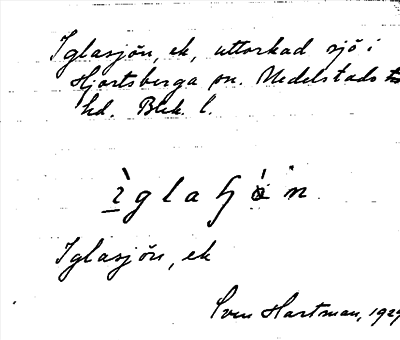 Iglasjön, ek, uttorkad sjö i
Hjortsberga sn. Medelstads
hd. Blek. l.
ìglaɧòn
Iglasjön, ek
Sven Hartman, 1929